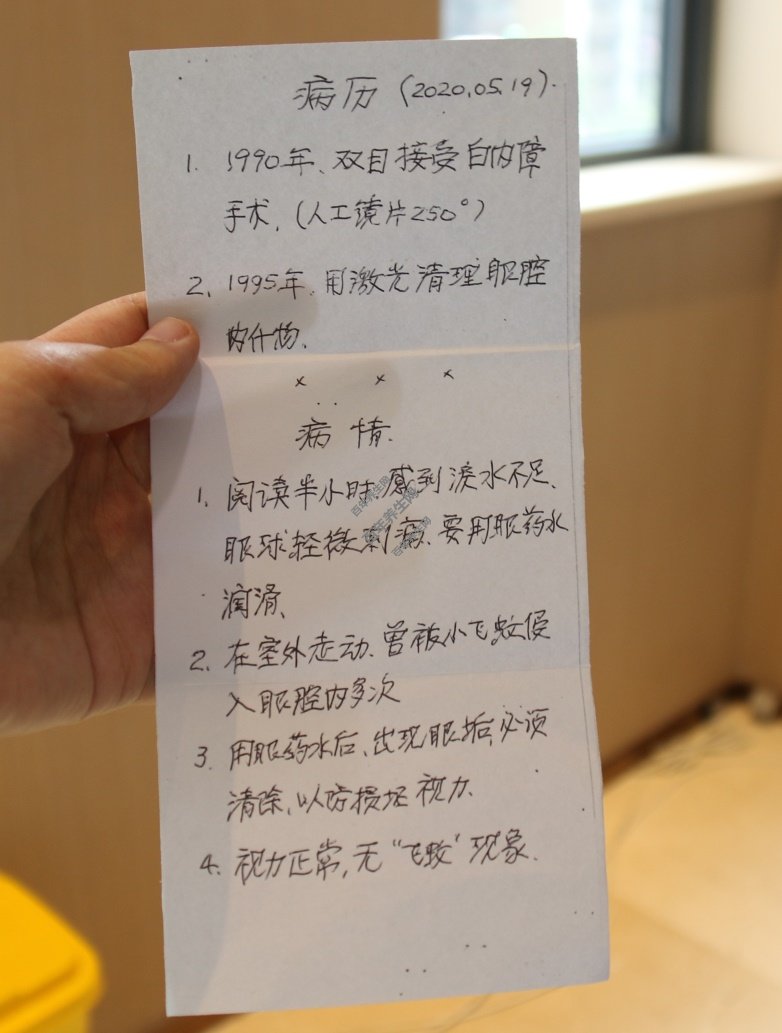 病历（2020.05.19）.
1. 1990年、双目接受白内障
手术，（人工镜片250°）
2. 1995年，用激光清理眼腔
的什物.
× × ×
病情.
1. 阅读半小时，感到淚水不足、
眼球轻微刺痛、要用眼药水
润滑、
2. 在室外走动、曾被小飞蚊侵
入眼腔内多次
3. 用眼药水后、出现眼垢，必须
清除，以防损坏视力.
4. 视力正常，无“飞蚊”现象.
百年养生网
百年养生网
百年养生网